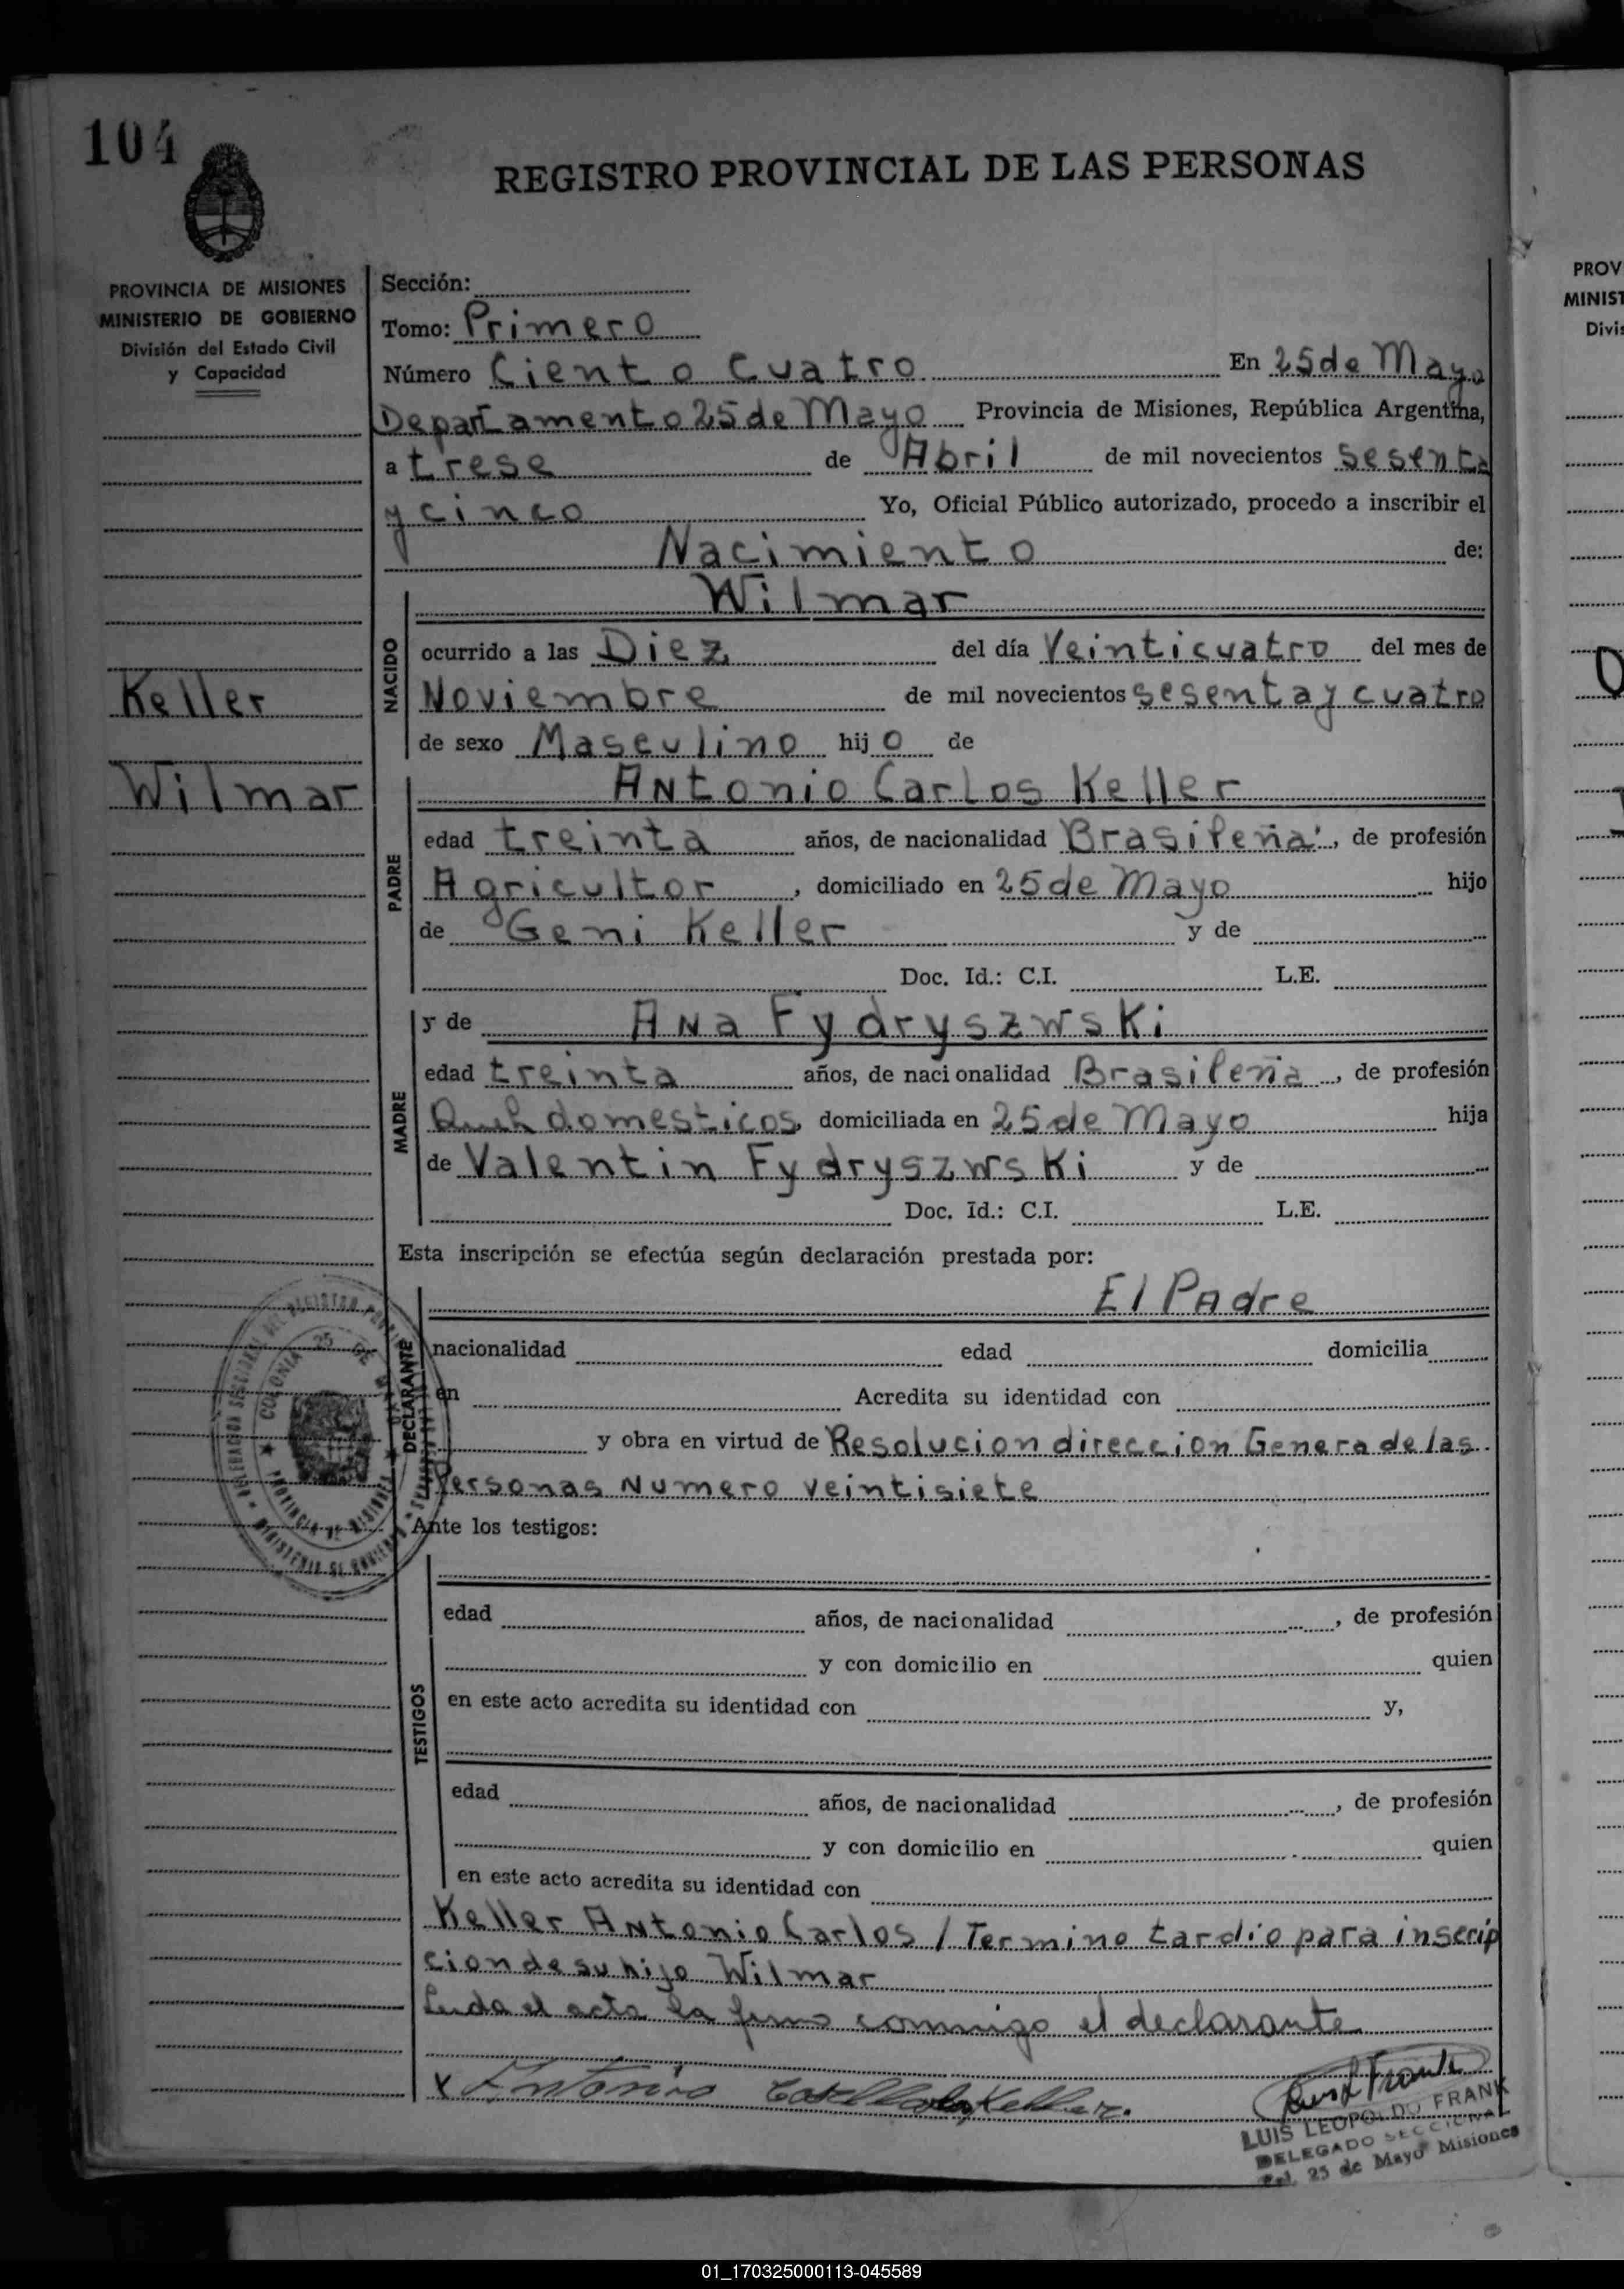 104
REGISTRO PROVINCIAL DE LAS PERSONAS
PROVINCIA DE MISIONES
MINISTERIO DE GOBIERNO
División del Estado Civil
y Capacidad
Keller
Wilmar
Sección:
Tomo: Primero
Número Ciento Cuatro En 25 de Mayo
Departamento 25 de Mayo Provincia de Misiones, República Argentina,
a trese de Abril de mil novecientos sesenta
y cinco Yo, Oficial Público autorizado, procedo a inscribir el
Nacimiento de:
NACIDO
Wilmar
ocurrido a las Diez del día Veinticuatro del mes de
Noviembre de mil novecientos sesenta y cuatro
de sexo Masculino hijo de
PADRE
Antonio Carlos Keller
edad treinta años, de nacionalidad Brasileña, de profesión
Agricultor, domiciliado en 25 de Mayo hijo
de Geni Keller y de
Doc. Id.: C.I. L.E.
MADRE
y de Ana Fydryszwski
edad treinta años, de nacionalidad Brasileña, de profesión
domesticos, domiciliada en 25 de Mayo hija
de Valentin Fydryszwski y de
Doc. Id.: C.I. L.E.
Esta inscripción se efectúa según declaración prestada por:
DECLARANTE
El Padre
nacionalidad edad domicilia
en Acredita su identidad con
y obra en virtud de Resolucion direccion Genera de las
Personas Numero veintisiete
COLONIA 25 DE
PROVINCIA DE MISIONES
Ante los testigos:
TESTIGOS
edad años, de nacionalidad , de profesión
y con domicilio en quien
en este acto acredita su identidad con y,
edad años, de nacionalidad , de profesión
y con domicilio en quien
en este acto acredita su identidad con
Keller Antonio Carlos / Termino tardio para inscrip
cion de su hijo Wilmar
Leida el acta la firma conmigo el declarante
x Antonio Keller.
LUIS LEOPOLDO FRANK
DELEGADO SECCIONAL
Col. 25 de Mayo Misiones
PROV
MINIST
Divis
01_170325000113-045589